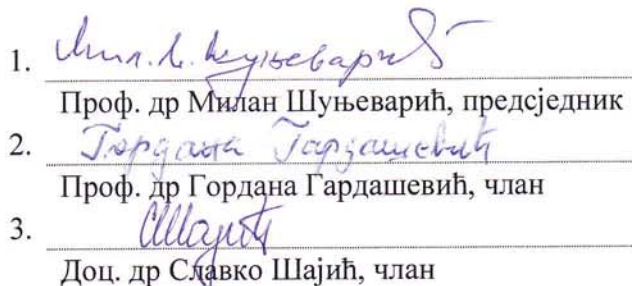 1.
Проф. др Милан Шуњеварић, предсједник
2. Гордана Гардашевић
Проф. др Гордана Гардашевић, члан
3.
Доц. др Славко Шајић, члан